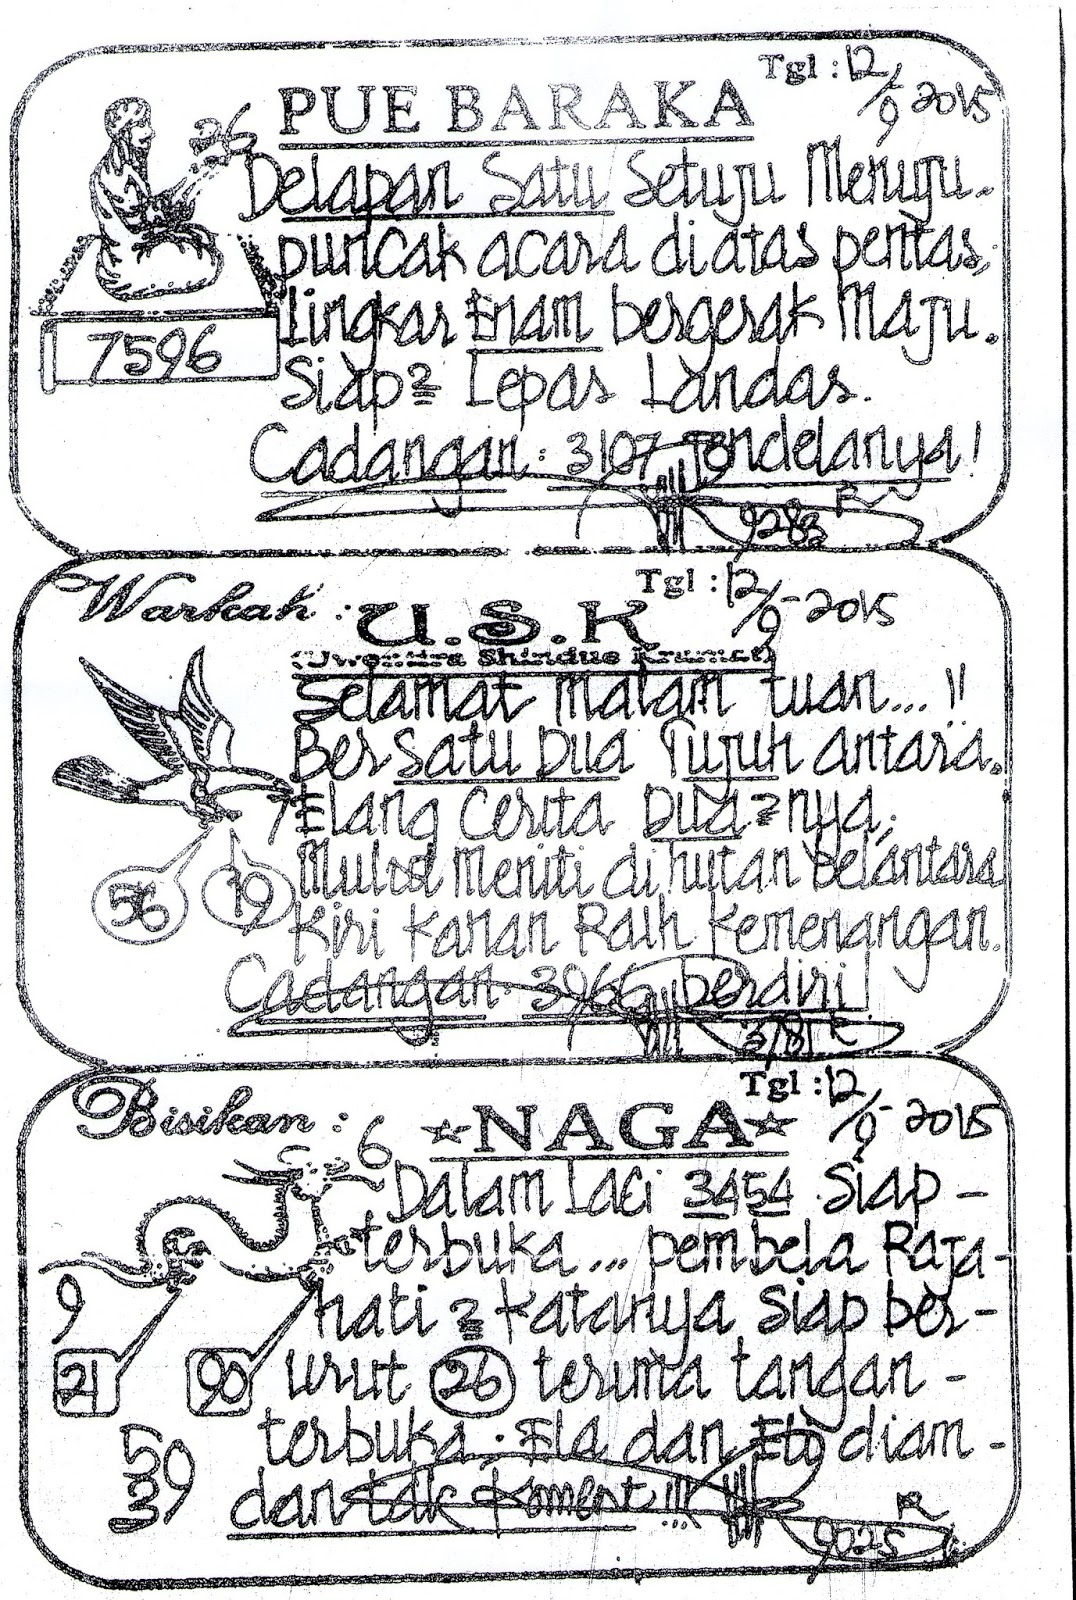 Tgl : 12/9 2015
PUE BARAKA
26
Delapan Satu Setuju Menuju-
puncak acara diatas pentas,
Lingkar Enam bergerak Maju.
7596
Siap2 Lepas Landas.
Cadangan : 3107 Jendelanya!
9283 R
Tgl : 12/9-2015
Warkah : U.S.K
Selamat malam tuan...!!
Ber Satu Dua Tujuh antara.
7 Elang Cerita Dua2nya,
Meniti di hutan belantara
56 19
Kiri Kanan Raih Kemenangan.
Cadangan : 3966 berdiri
3781 R
Tgl : 12/9-2015
Bisikan : NAGA
6
Dalam Laci 3454 Siap -
terbuka... pembela Raja-
9
hati2 Katanya Siap ber-
21 90 urut 26 terima tangan -
terbuka. Ela dan Elo diam -
59
39
dan tak Koment !!!
R
9025